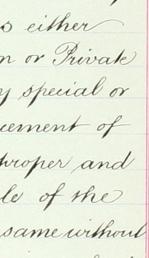 s either
n or Private
y special or
cement of
troper and
le of the
same without